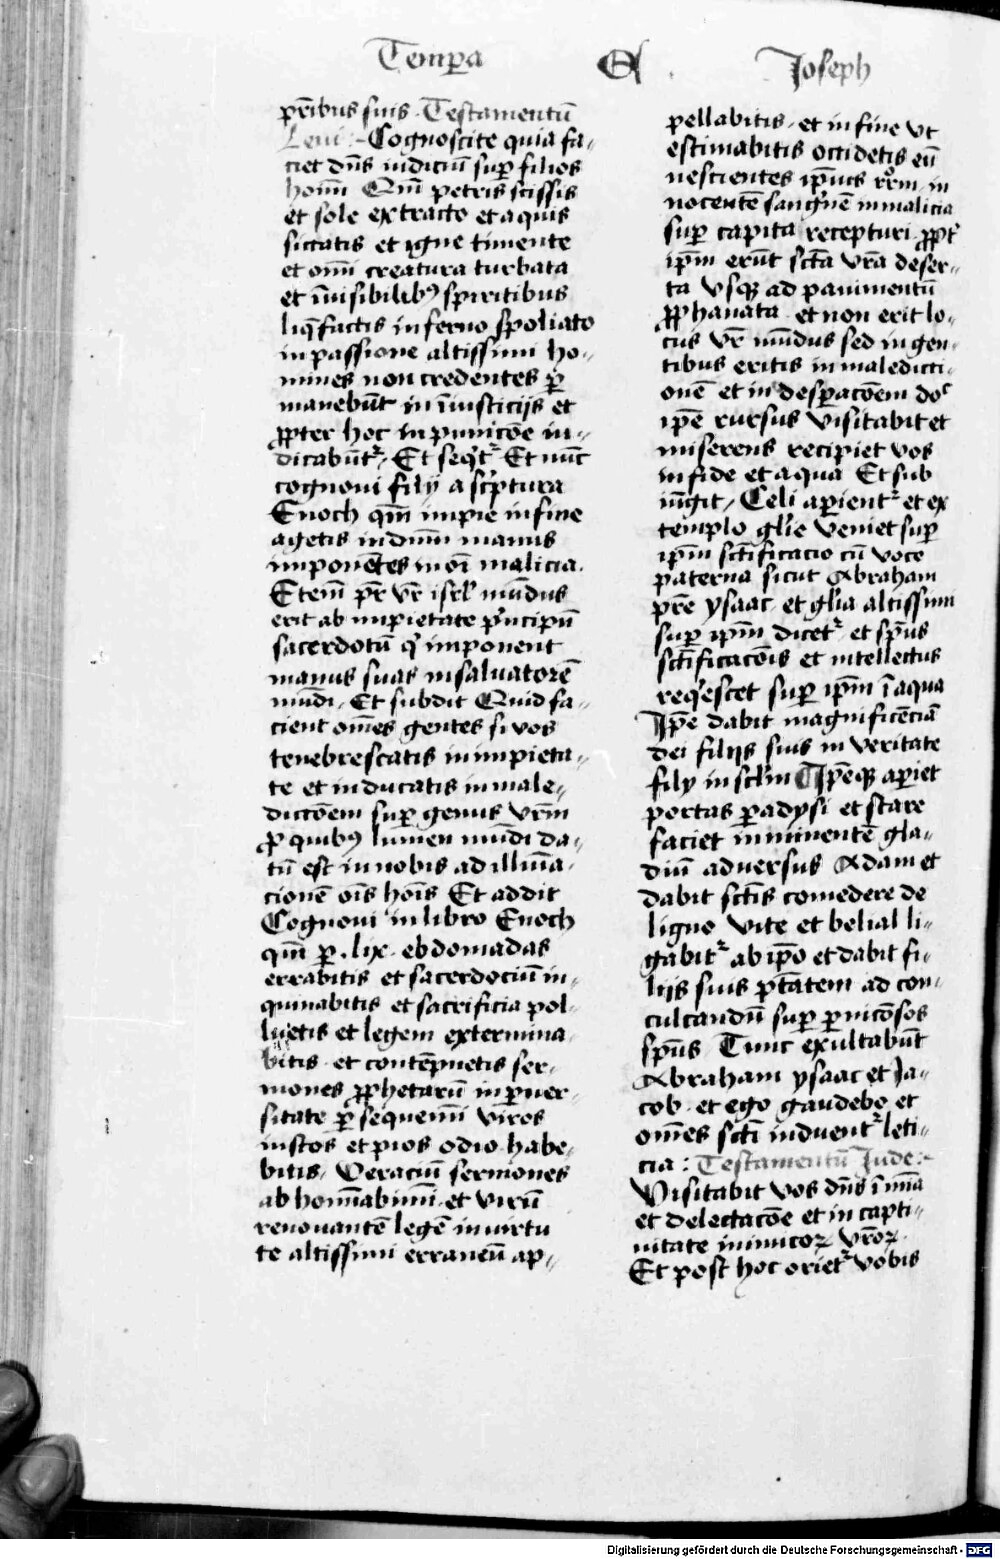 Temp̲a
Joseph
pr̄ibus suis · Testamentū
Leui :- Cognoscite quia fa-
ciet dn̄s iudiciū sup̱ filios
hoīm Qm̄ petris scissis
et sole extracto et aquis
siccatis et igne timente
et omī creatura turbata
et īuisibilibꝰ spiritibus
liq̄factis inferno spoliato
in passione altissimi ho-
mines non credentes p̱
manebūt in īiusticijs et
ꝓpter hoc in punicōe iu-
dicabūtr̄ · Et seqͥtr̄ Et nūc
cognoui filij a scͥptura
Enoch qm̄ impie in fine
agetis in dnm̄ manus
imponētes in oī malicia ·
Etem̄ pr̄ vr̄ isrl̄ mūdus
erit ab impietate pͥncipū
sacerdotū qͥ imponent
manus suas in saluatorē
mūdi · Et subdit Quid fa-
cient om̄es gentes si vos
tenebrescatis in impieta-
te et inducatis in male-
dictōem sup̱ genus vrm̄
ꝓ quibꝰ lumen mūdi da-
tū est in nobis ad illumīa-
cionē oīs hoīs Et addit
Cognoui in libro Enoch
qm̄ p̱ . lxx . ebdomadas
errabitis et sacerdociū in-
quinabitis et sacrificia pol-
luetis et legem extermina-
bitis · et contēpnetis ser-
mones ꝓphetarū in p̱uer-
sitate p̱sequemī viros
iustos et pios odio habe-
bitis · Veraciū sermones
abhomīabimī · et virū
renouantē legē in virtu
te altissimi erraneū ap-
pellabitis · et in fine vt
estimabitis occidetis eū
nescientes ip̄ius rr̄m in
nocentē sangͥnē in malicia
sup̱ capita recepturi · ꝓpt̄
ip̄m erūt sct̄a vr̄a deser-
ta vsqꝫ ad pauimentū
ꝓphanata · et non erit lo-
cus vr̄ mūdus sed in gen-
tibus eritis in maledicti-
onē et in desp̱acōem doc̄
ip̄e rursus visitabit et
miserens recipiet vos
in fide et aqua Et sub
iūgit · Celi ap̱ientr̄ et ex
templo gl̄ie veniet sup̱
ip̄m sct̄ificacio cū voce
paterna sicut Abraham
pr̄e ysaac · et gl̄ia altissimi
sup̱ ip̄m dicetr̄ · et sp̄us
sct̄ificacōis et intellectus
reqͥescet sup̱ ip̄m ī aqua
Ip̄e dabit magnificēciā
dei filijs suis in veritate
filij in scl̄m Ip̄eqꝫ ap̱iet
portas p̱adysi et stare
faciet imminentē gla-
diū aduersus Adam et
dabit sct̄is comedere de
ligno vite et belial li-
gabitr̄ ab ip̄o et dabit fi-
lijs suis pt̄atem ad con-
culcandū sup̱ p̱nicōsos
sp̄us Tunc exultabūt
Abraham ysaac et Ja-
cob · et ego gaudebo et
om̄es sct̄i induentr̄ leti-
cia : Testamentū Jude :-
Visitabit vos dn̄s ī īiīa
et delectacōe et in capti-
uitate inimicoꝝ vr̄oꝝ ·
Et post hoc orietr̄ vobis
Digitalisierung gefördert durch die Deutsche Forschungsgemeinschaft - DFG